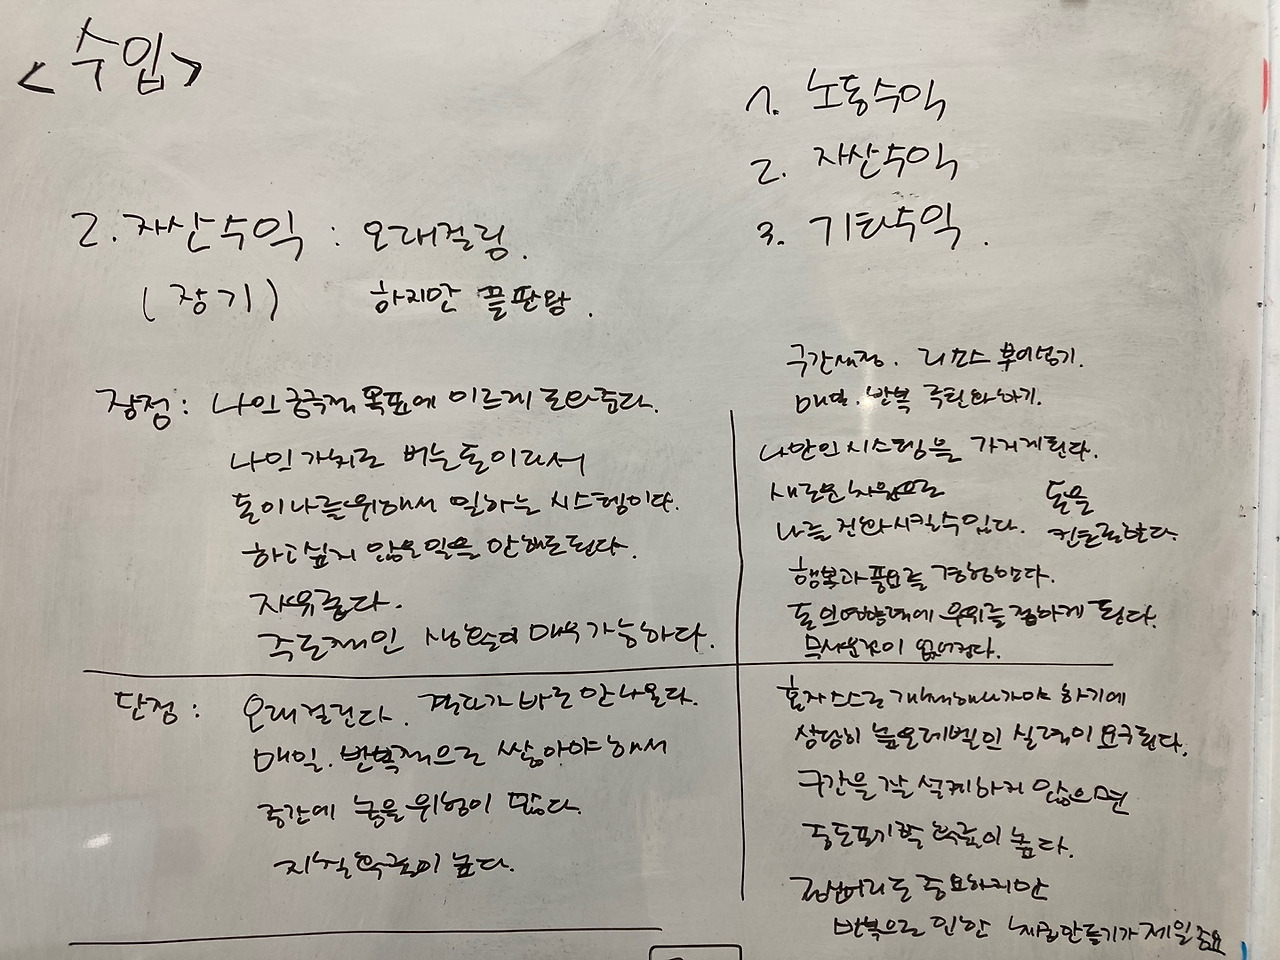 <수입>
1. 노동수익
2. 자산수익
3. 기타수익.
2. 자산수익 : 오래걸림.
(장기) 하지만 끝판왕.
장점: 나의 궁극적 목표에 이르게 도와준다.
나의 가치로 버는돈이라서
돈이나를위해서 일하는 시스템이다.
하고싶지 않은일은 안해도된다.
자유롭다.
주도적인 생활이 매우가능하다.
구간설정. 리소스 투여섬기.
매일. 반복 루틴화하기.
나만의시스템을 가지게된다.
새로운차원으로
나를 진화시킬수있다.
돈을
컨트롤한다.
행복과 풍요를 경험한다.
돈의영향력에 우위를 점하게 된다.
무서운것이 없어진다.
단점: 오래걸린다. 결과가 바로 안나온다.
매일. 반복적으로 쌓아야해서
중간에 놓을 위험이 많다.
지칠확률이 높다.
혼자스스로 개척해나가야 하기에
상당히 높은레벨의 실력이 요구된다.
구간을 잘 설계하지 않으면
중도포기할 확률이 높다.
중요하지만
반복으로 인한 만들기가 제일중요